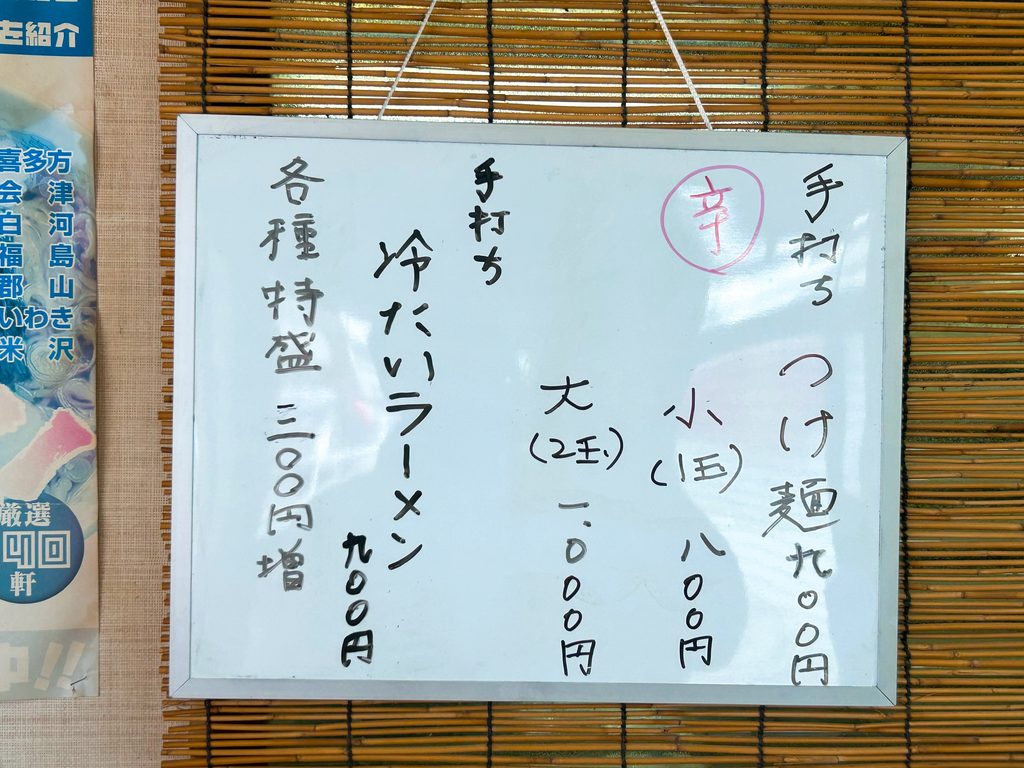 手打ち つけ麺 九〇〇円
辛
小(1玉) 八〇〇円
大(2玉) 一、〇〇〇円
手打ち
冷たいラーメン
九〇〇円
各種特盛 三〇〇円増
を紹介
喜多方
会津
白河
福島
郡山
いわき
米沢
厳選
40
軒
中!!